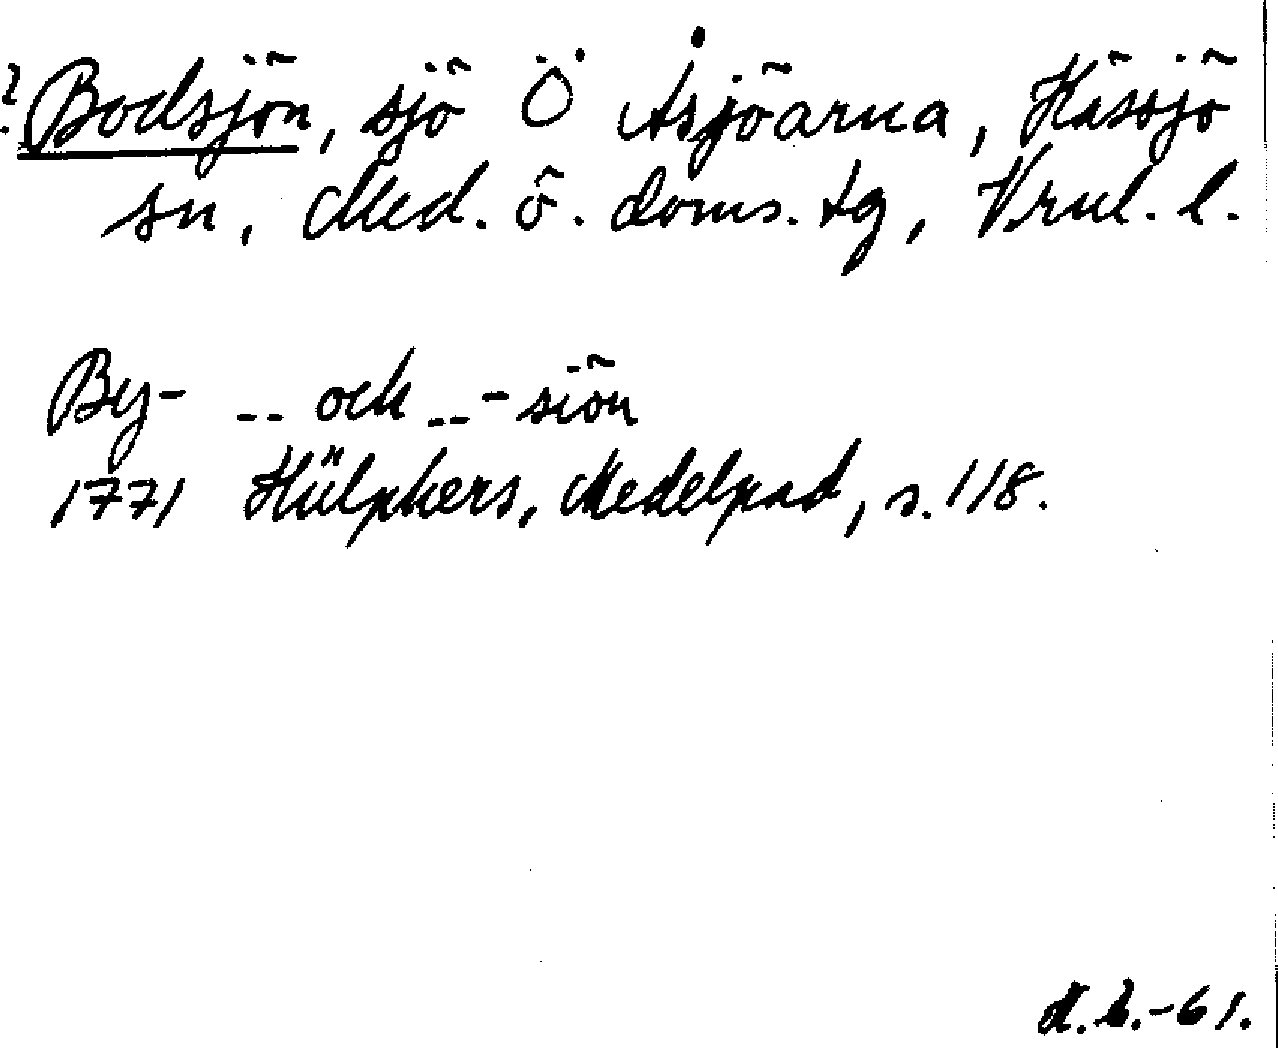 ? Bodsjön, sjö Ö Åsjöarna, Hässjö
sn, Med. ö. doms. tg, Vrnl. l.
By- -- och -- -siön
1771 Hülphers, Medelpad, s. 118.